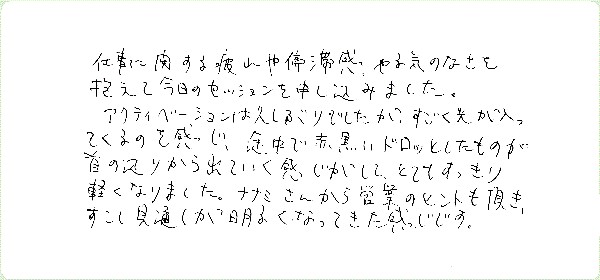 仕事に関する疲れや停滞感、やる気のなさを
抱えて今日のセッションを申し込みました。
アクティベーションは久しぶりでしたが、すごく光が入っ
てくるのを感じ、途中で赤黒いドロッとしたものが
首の辺りから出ていく感じがして、とてもすっきり
軽くなりました。ナナミさんから営業のヒントも頂き、
すこし見通しが明るくなってきた感じです。